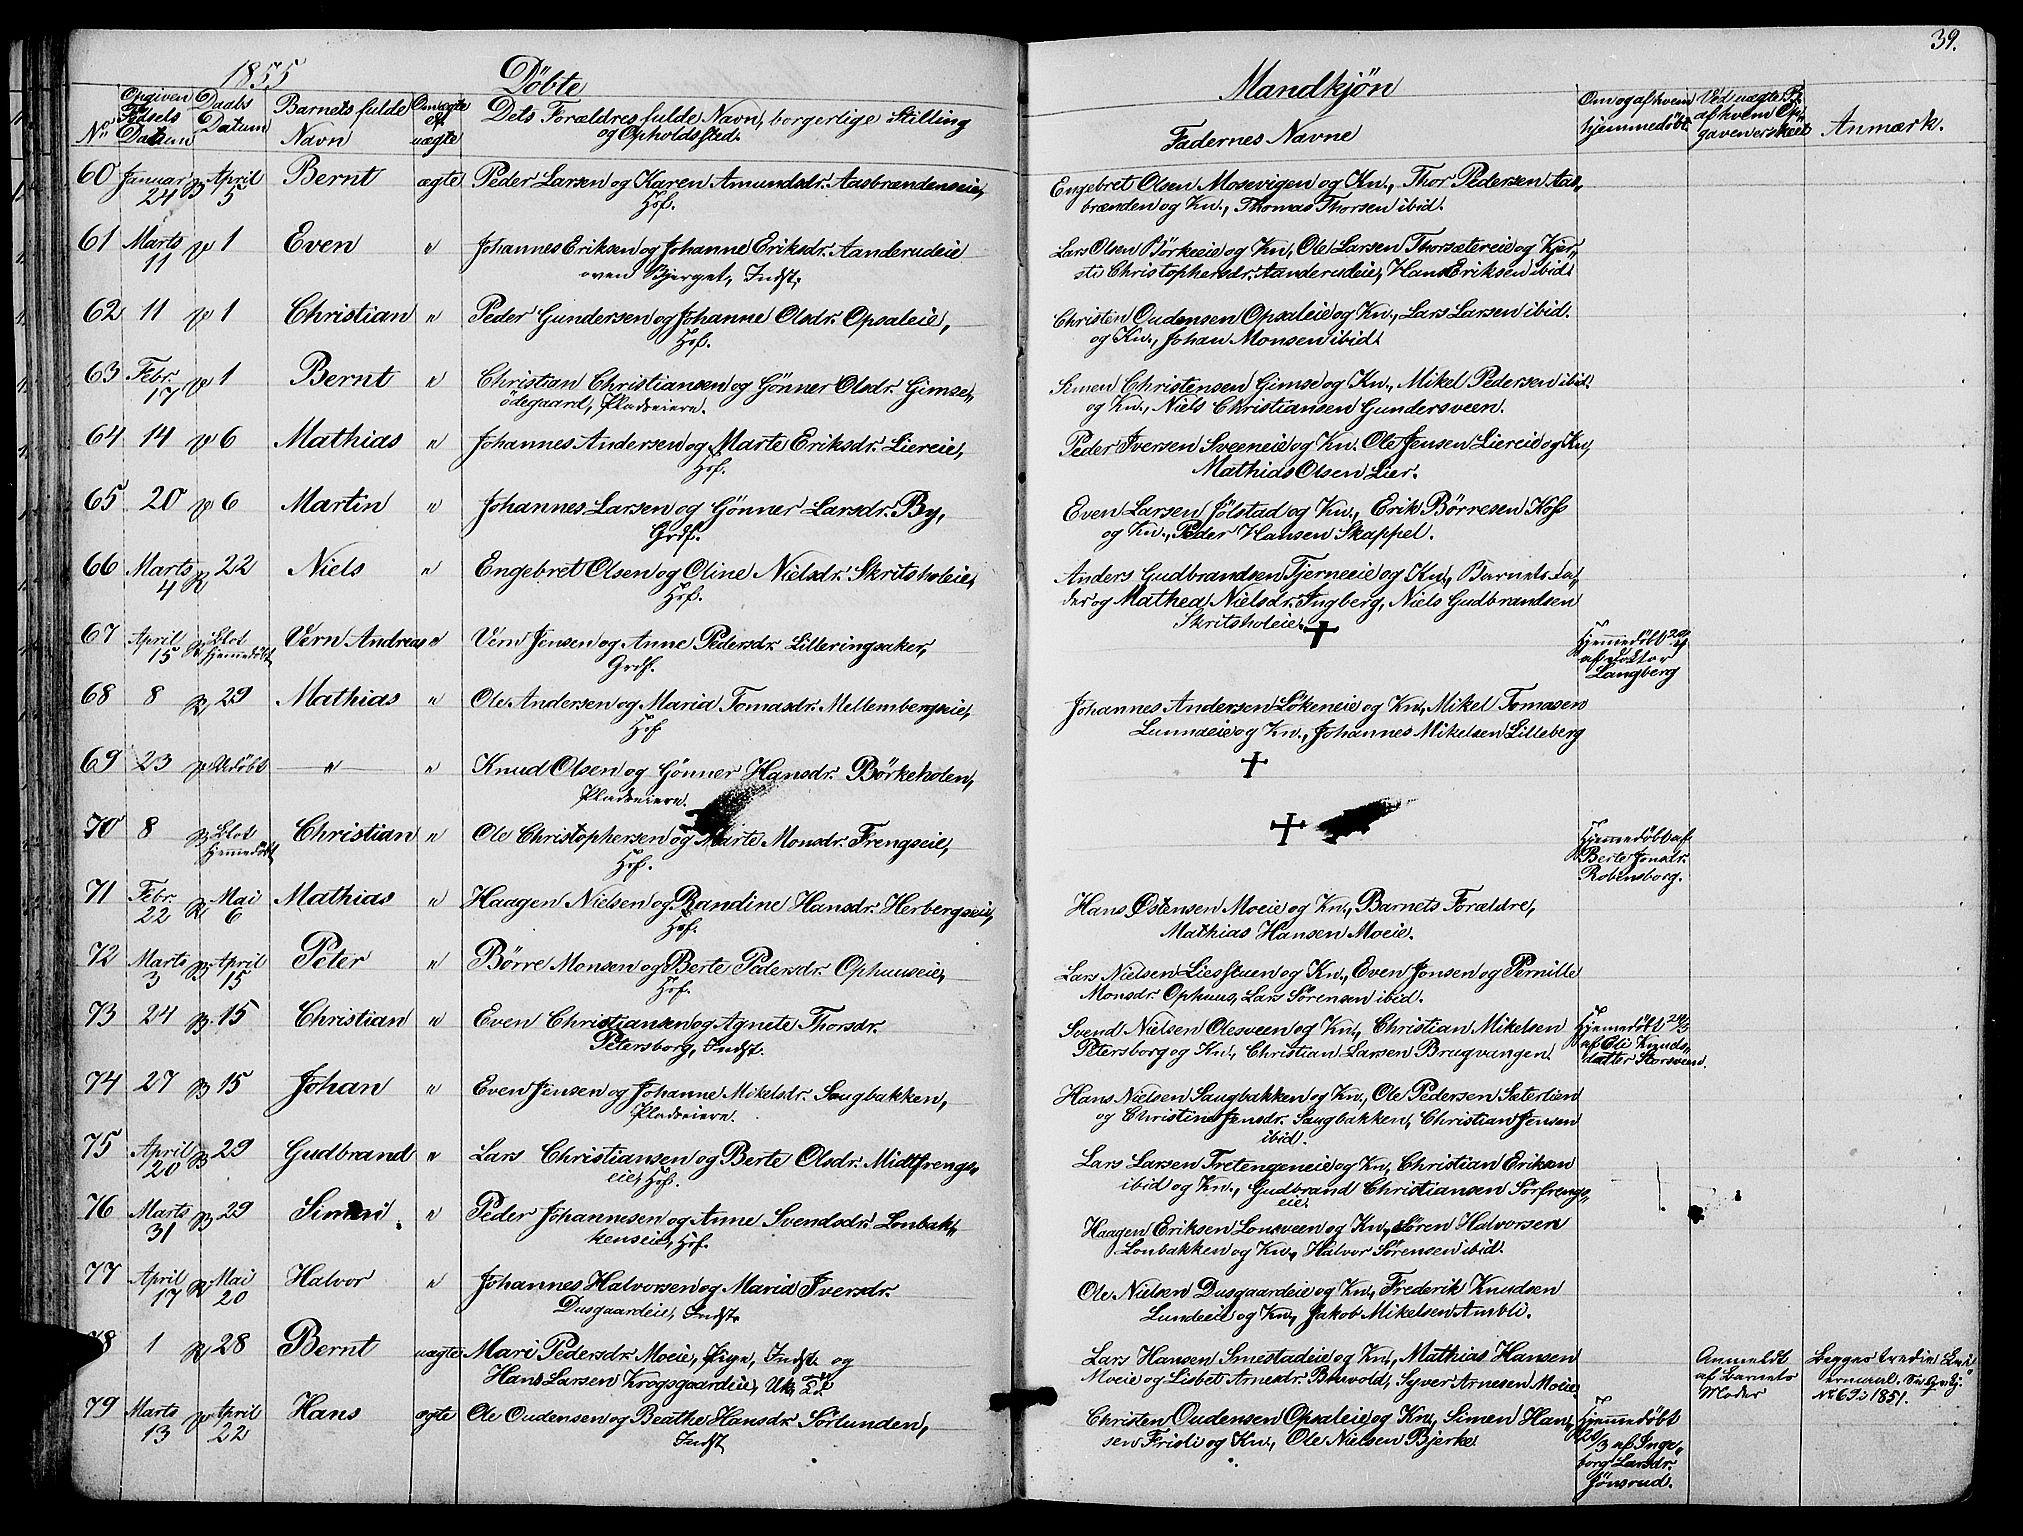 39.
1855 Döbte Mandkjön
No Opgiven Födsels Datum Daabs Datum Barnets fulde Navn Om ægte el. uægte Dets Forældres fulde Navn, borgerlige Stilling og Opholdssted. Faddernes Navne Om og af hvem hjemmedöbt Ved uægte B. af hvem Opgaven er skeet Anmærk.
60 Januar 24 April 5 Bernt ægte Peder Larsen og Karen Amundsdr. Aasbrændeneie,
Hsf.
Engebret Olsen Mosevigen og Kn., Thor Pedersen Aas„
brænden og Kn., Thomas Thorsen ibid.
61 Marts 11 1 Even „ Johannes Eriksen og Johanne Eriksdr. Aanderudeie
oven Bjerget, Indst.
Lars Olsen Börkeeie og Kn., Ole Larsen Thorsætereie og Kjer„
sti Christophersdr. Aanderudeie, Hans Eriksen ibid.
62 11 1 Christian „ Peder Gundersen og Johanne Olsdr. Opsaleie,
Hsf.
Christen Oudensen Opsaleie og Kn., Lars Larsen ibid.
og Kn., Johan Monsen ibid.
63 Febr. 17 1 Bernt „ Christian Christiansen og Gönner Olsdr. Gimse„
ödegaard, Pladseiere.
Simen Christensen Gimse og Kn., Mikel Pedersen ibid.
og Kn., Niels Christiansen Gundersveen.
64 14 6 Mathias „ Johannes Andersen og Marte Eriksdr. Liereie,
Hsf.
Peder Iversen Sveeneie og Kn. Ole Jensen Liereie og Kn,
Mathias Olsen Lier.
65 20 6 Martin „ Johannes Larsen og Gönner Larsdr. By,
Grdf.
Even Larsen Jölstad og Kn., Erik Börresen Koss
og Kn., Peder Hansen Skappel.
66 Marts 4 22 Niels „ Engebret Olsen og Oline Nielsdr. Skritsholeie,
Hsf.
Anders Gudbrandsen Tjerneeie og Kn., Barnets Fa„
der og Mathea Nielsdr. Ingberg, Niels Gudbrandsen
Skritsholeie.
67 April 15 Blot hjemmedöbt Vern Andreas „ Vern Jensen og Anne Pedersdr. Lilleringsaker,
Grdf.
Hjemmedöbt 20/4
af Doktor
Langberg
68 8 29 Mathias „ Ole Andersen og Maria Tomasdr. Mellembergseie,
Hsf
Johannes Andersen Lökeneie og Kn., Mikel Tomasen
Lunndeie og Kn., Johannes Mikelsen Lilleberg
69 23 Udöbt „ „ Knud Olsen og Gönner Hansdr. Börkeholen,
Pladseiere.
70 8 Blot hjemmedöbt Christian „ Ole Christophersen og Marte Monsdr. Frengseie,
Hsf.
Hjemmedöbt af
Berte Jonsdr.
Robensborg.
71 Febr. 22 Mai 6 Mathias „ Haagen Nielsen og Randine Hansdr. Herbergseie,
Hsf.
Hans Östensen Moeie og Kn., Barnets Forældre,
Mathias Hansen Moeie.
72 Marts 3 April 15 Peter „ Börre Monsen og Berte Pedersdr. Ophuuseie,
Hsf.
Lars Nielsen Liesstuen og Kn., Even Jonsen og Pernille
Monsdr. Ophuus, Lars Sörensen ibid.
73 24 15 Christian „ Even Christiansen og Agnete Thorsdr.
Petersborg, Indst.
Svend Nielsen Olesveen og Kn., Christian Mikelsen
Petersborg og Kn., Christian Larsen Brugvangen.
Hjemmedöbt 24/3
af Oli Knuds„
datter Storsveen.
74 27 15 Johan „ Even Jensen og Johanne Mikelsdr. Saugbakken,
Pladseiere.
Hans Nielsen Saugbakken og Kn., Ole Pedersen Sæterlien
og Christine Jensdr. Saugbakken, Christian Jensen
ibid.
75 April 20 29 Gudbrand „ Lars Christiansen og Berte Olsdr. Midtfrengs„
eie, Hsf.
Lars Larsen Tretengeneie og Kn., Christian Eriksen
ibid og Kn., Gudbrand Christiansen Sörfrengs„
eie.
76 Marts 31 29 Simen „ Peder Johannesen og Anne Svendsdr. Lonbak„
keneie, Hsf.
Haagen Eriksen Lonsveen og Kn., Sören Halvorsen
Lonbakken og Kn., Halvor Sörensen ibid.
77 April 17 Mai 20 Halvor „ Johannes Halvorsen og Maria Iversdr.
Dusgaardeie, Indst.
Ole Nielsen Dusgaardeie og Kn., Frederik Knudsen
Lundeeie og Kn., Jakob Mikelsen Ambli.
78 1 28 Bernt uægte Mari Pedersdr. Moeie, Pige, Indst. og
Hans Larsen Krogsgaardeie, Uk,
Lars Hansen Smestadeie og Kn., Mathias Hansen
Moeie og Lisbet Arnesdr. Buvold, Syver Arnesen Moeie.
Anmeldt
af Barnets
Moder
Begges tredie Leier„
maal.
No 69: 1851.
79 Marts 13 April 22 Hans ægte Ole Oudensen og Beathe Hansdr. Sörlunden,
Indst
Christen Oudensen Opsaleie og Kn., Simen Han„
sen Frisli og Kn., Ole Nielsen Bjerke
Hjemmedöbt
20/3 af Inge„
borg Larsdr.
Jönsrud.